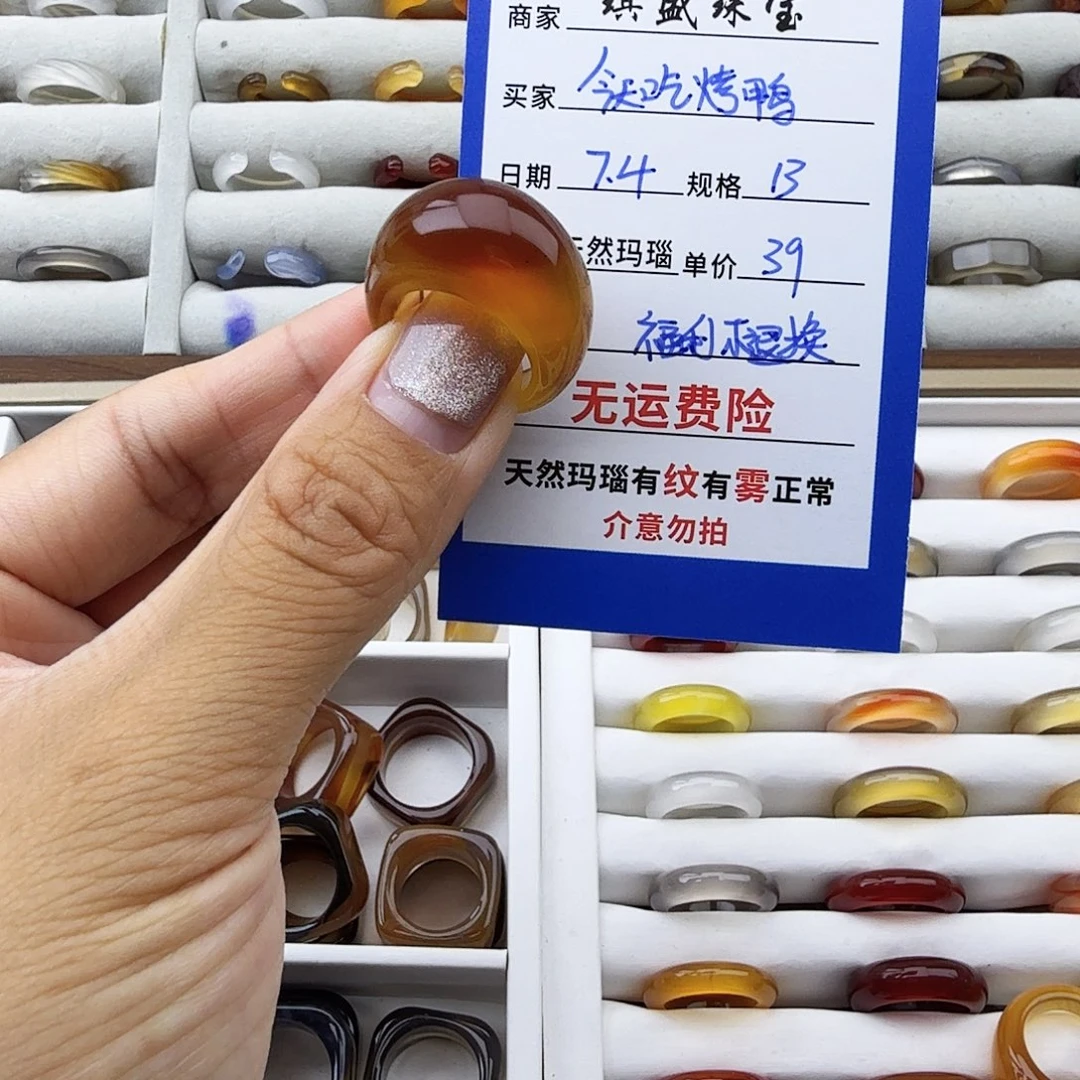 商家 盛珠宝
买家 今天吃烤鸭
日期 7.4 规格 13
天然玛瑙 单价 39
福利不退换
无运费险
天然玛瑙有纹有雾正常
介意勿拍